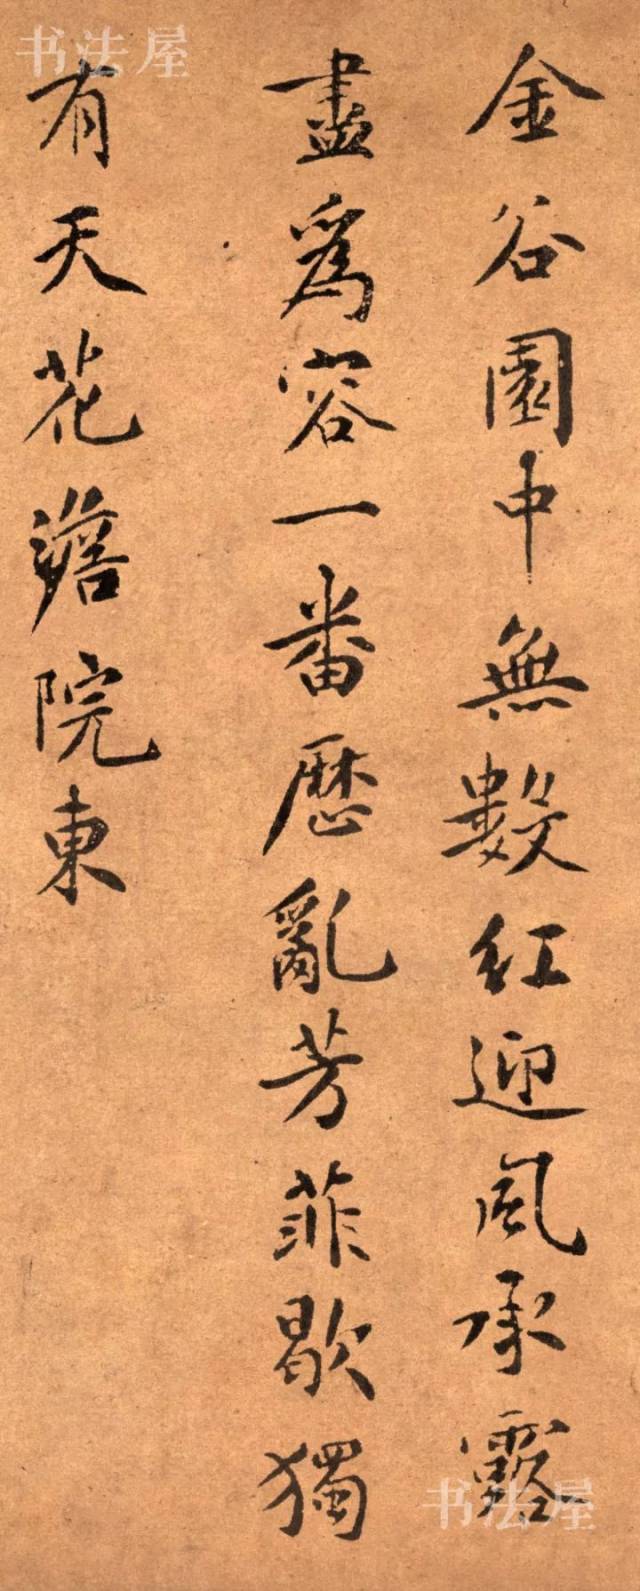 金谷園中無數紅迎風承露
盡爲容一番歷亂芳菲歇獨
有天花澹院東
书法屋
书法屋